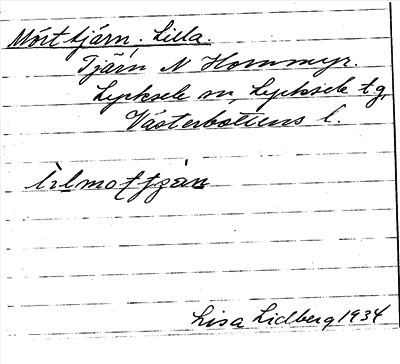 Mörttjärn, Lilla.
Tjärn N Hornmyr.
Lycksele sn, Lycksele tg,
Västerbottens l.
Lisa Lidberg 1934